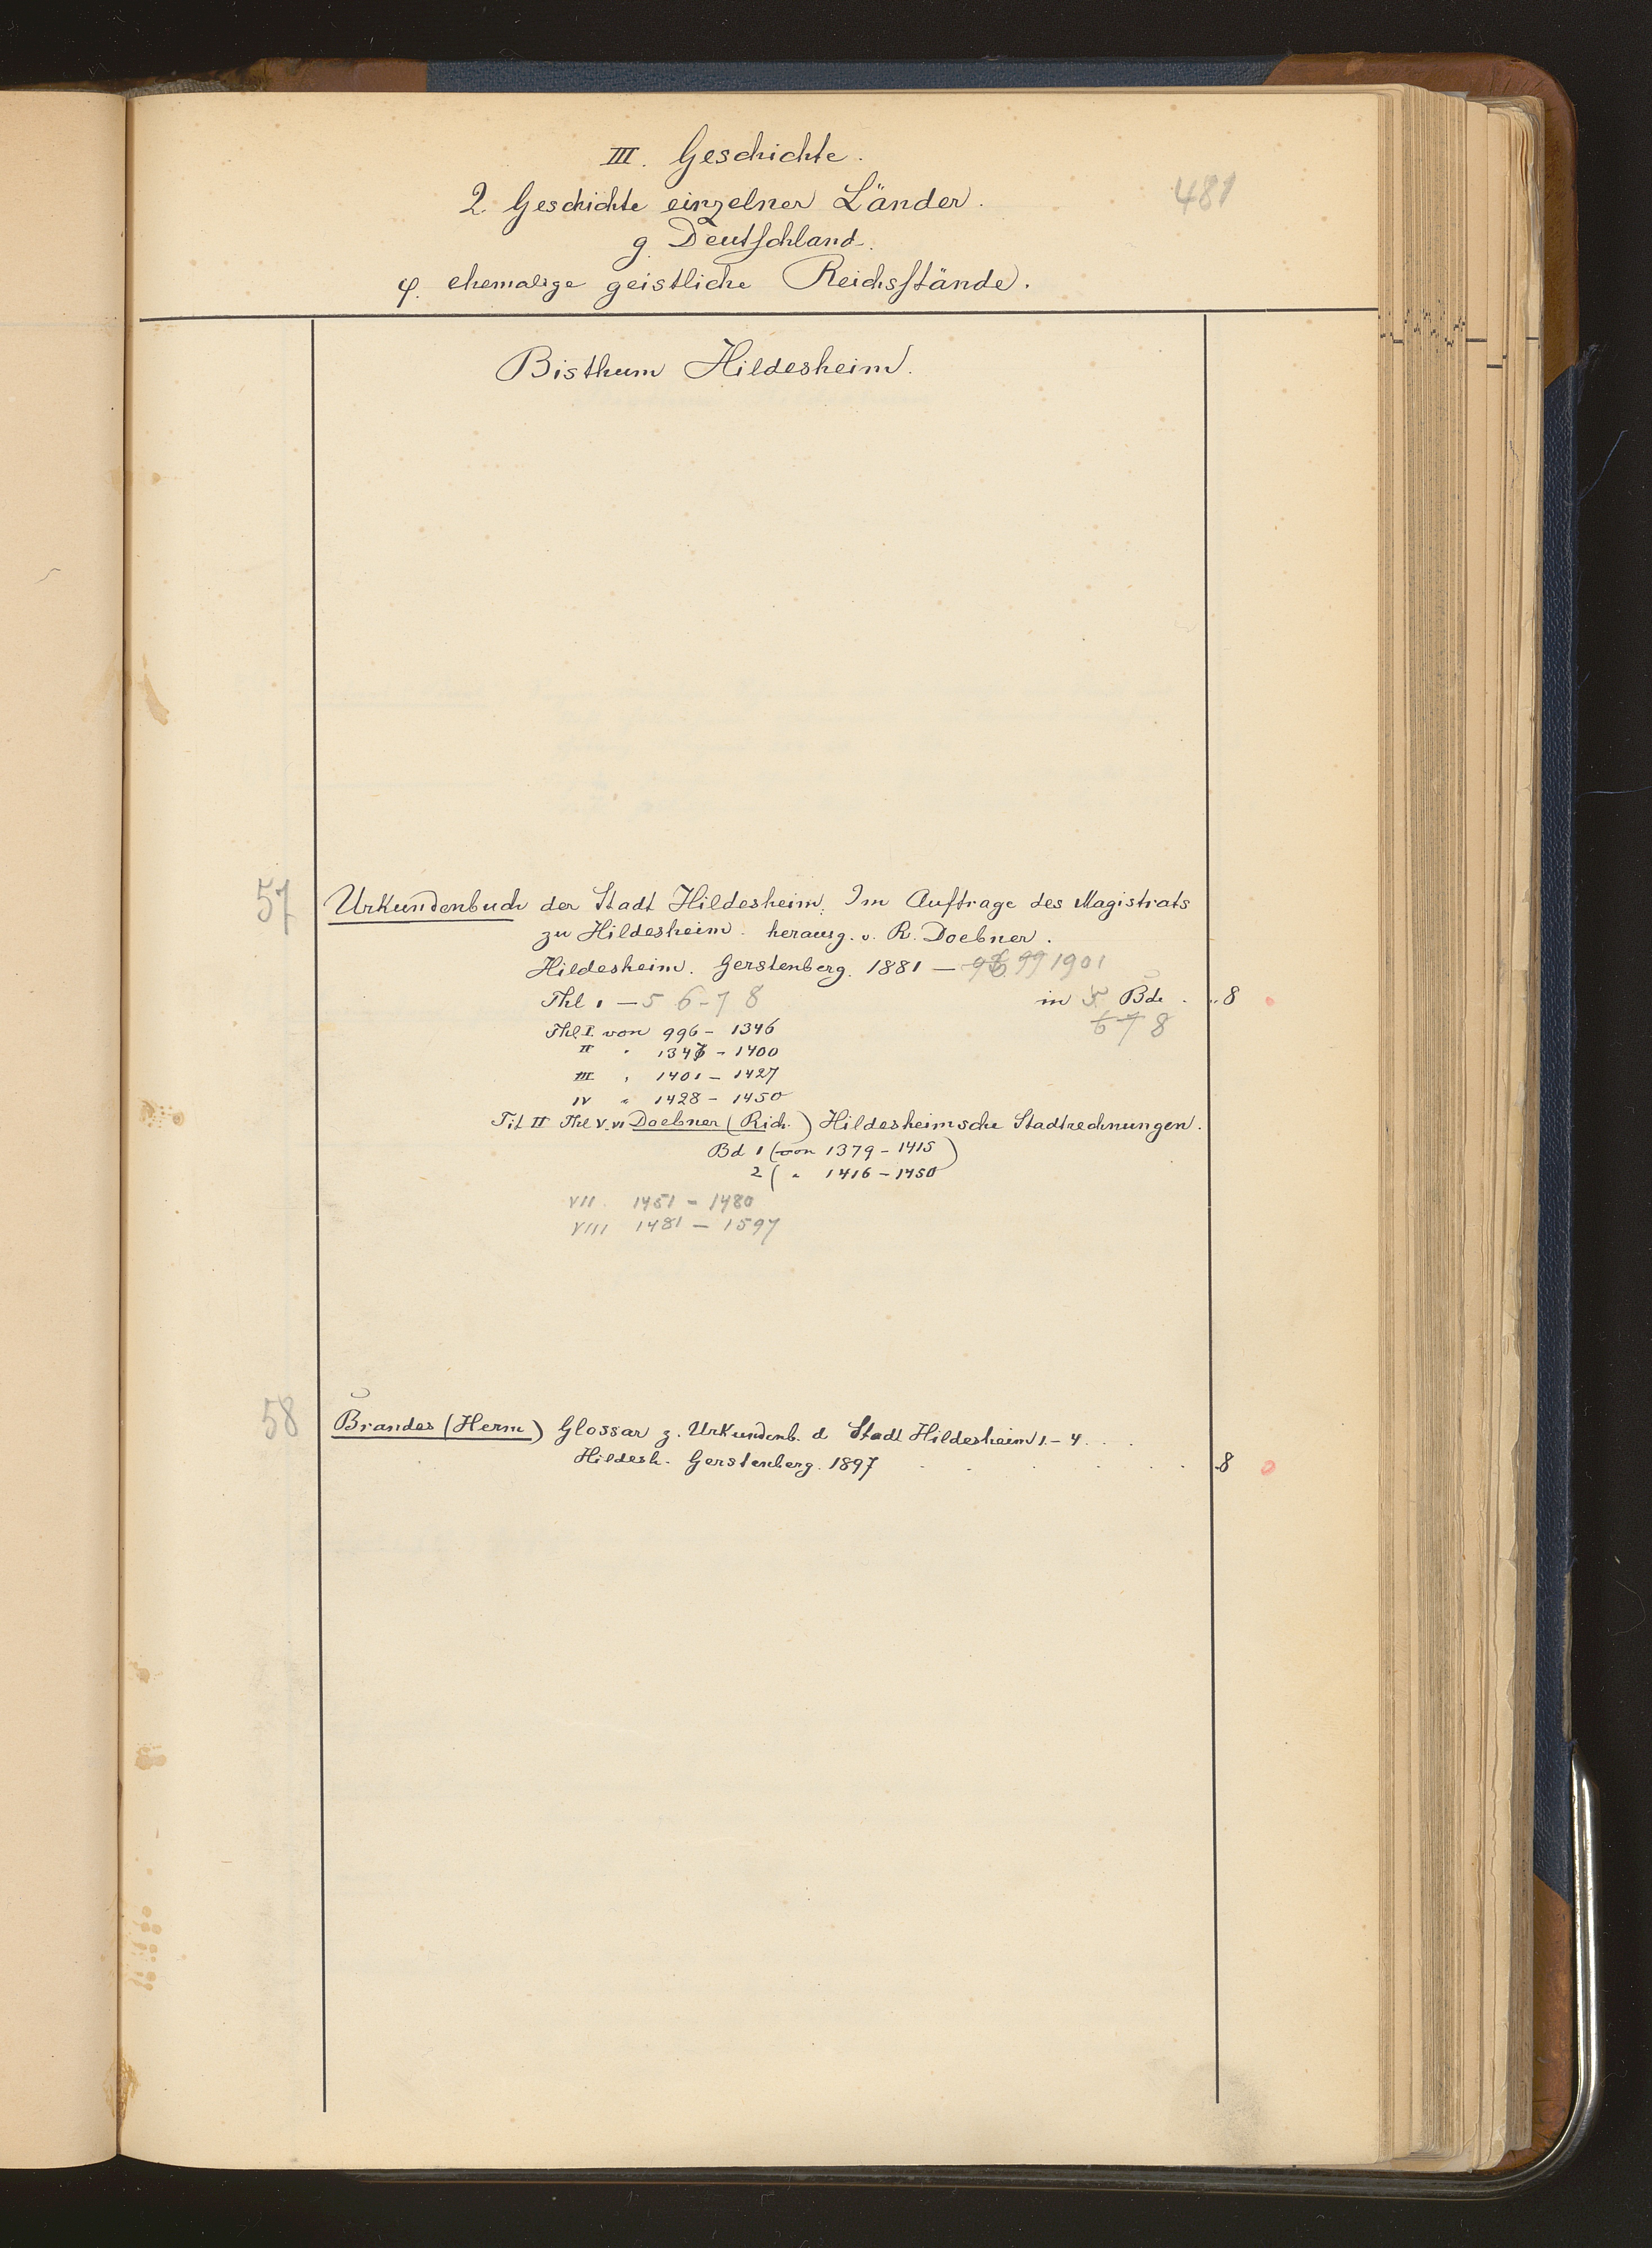 III. Geschichte.
2. Geschichte einzelner Länder.
481
g. Deutschland.
φ. ehemalige geistliche Reichsstände.
Bisthum Hildesheim.
57
Urkundenbuch der Stadt Hildesheim. Im Auftrage des Magistrats
zu Hildesheim. herausg. v. R. Doebner.
Hildesheim. Gerstenberg. 1881 — 96 99 1901
Thl 1 — 5 6 - 7 8 in 5 Bde . „ 8
6 7 8
Thl I. von 996 - 1346
II " 1347 - 1400
III " 1401 - 1427
IV " 1428 - 1450
Tit II Thl V. VI Doebner (Rich.) Hildesheimsche Stadtrechnungen.
Bd 1 (von 1379 - 1415)
2 ( " 1416 - 1450
VII. 1451 - 1480
VIII 1481 - 1597
58
Brandes (Herm) Glossar z. Urkundenb. d Stadt Hildesheim 1. - 4 . . .
Hildesh. Gerstenberg. 1897 . . . . . . 8